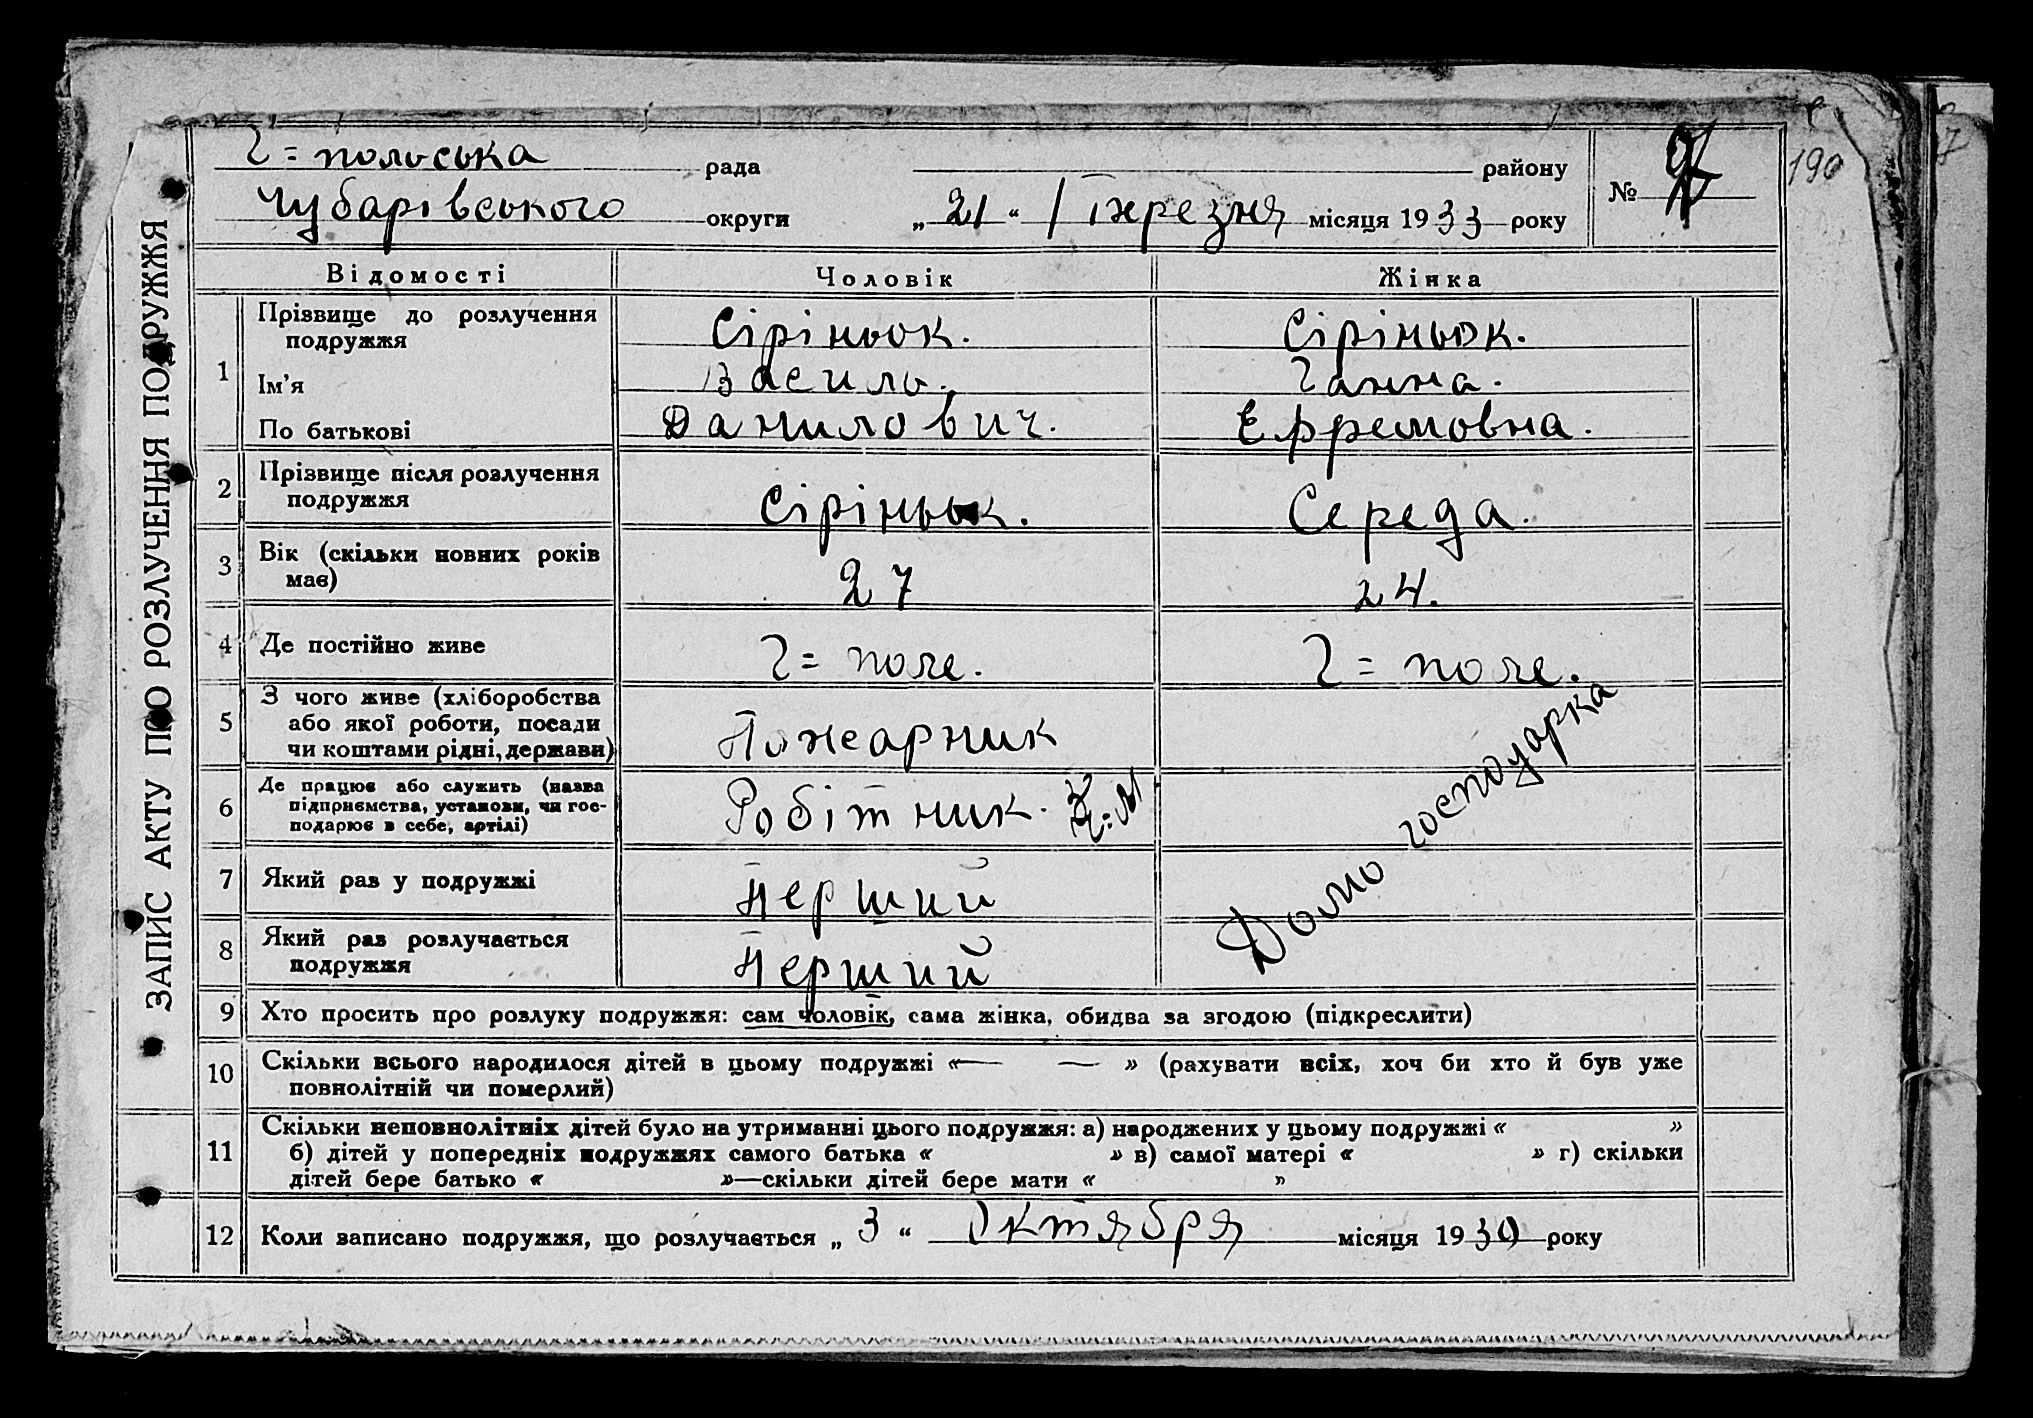 ЗАПИС АКТУ ПРО РОЗЛУЧЕННЯ ПОДРУЖЖЯ
Г=польська рада району №
190
Чубарівського округи „21“ березня місяця 1933 року
Відомості Чоловік Жінка
1 Прізвище до розлучення подружжя Сіріньок. Сіріньок.
Ім'я Василь. Ганна.
По батькові Данилович. Ефремовна.
2 Прізвище після розлучення подружжя Сіріньок. Середа.
3 Вік (скільки повних років має) 27 24.
4 Де постійно живе Г=поле. Г=поле.
5 З чого живе (хліборобства або якої роботи, посади чи коштами рідні, держави) Пожарник
Домогосподарка
6 Де працює або служить (назва підприємства, установи, чи господарює в себе, артілі) Робітник.
7 Який раз у подружжі Перший
8 Який раз розлучається подружжя Перший
9 Хто просить про розлуку подружжя: сам чоловік, сама жінка, обидва за згодою (підкреслити)
10 Скільки всього народилося дітей в цьому подружжі «— —» (рахувати всіх, хоч би хто й був уже
повнолітній чи померлий)
11 Скільки неповнолітніх дітей було на утриманні цього подружжя: а) народжених у цьому подружжі « »
б) дітей у попередніх подружжях самого батька « » в) самої матері « » г) скільки
дітей бере батько « »—скільки дітей бере мати « »
12 Коли записано подружжя, що розлучається „3“ Октября місяця 1930 року